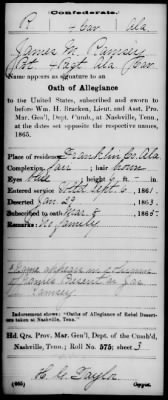 Confederate.
R Cav Ala
James M. Ramsey
Name appears as signature to an
Oath of Allegiance
to the United States, subscribed and sworn to
before Wm. H. Bracken, Lieut. and Asst. Pro.
Mar. Gen'l, Dept. Cumb., at Nashville, Tenn.,
at the dates set opposite the respective names,
1865.
Place of residence Franklin Co. Ala
Complexion, fair; hair brown
eyes blue; height 6 ft. - in.
Entered service Sept. 6, 1861.
Deserted Jan. 29, 1863.
Subscribed to oath Mar. 8, 1865.
Remarks: No family
Name appears on
as James
Ramsey
Indorsement shows: "Oaths of Allegiance of Rebel Desert-
ers taken at Nashville, Tenn."
Hd. Qrs. Prov. Mar. Gen'l, Dept. of the Cumb'd,
Nashville, Tenn.; Roll No. 575; sheet 3
H. C. Taylor
(605) Copyist.